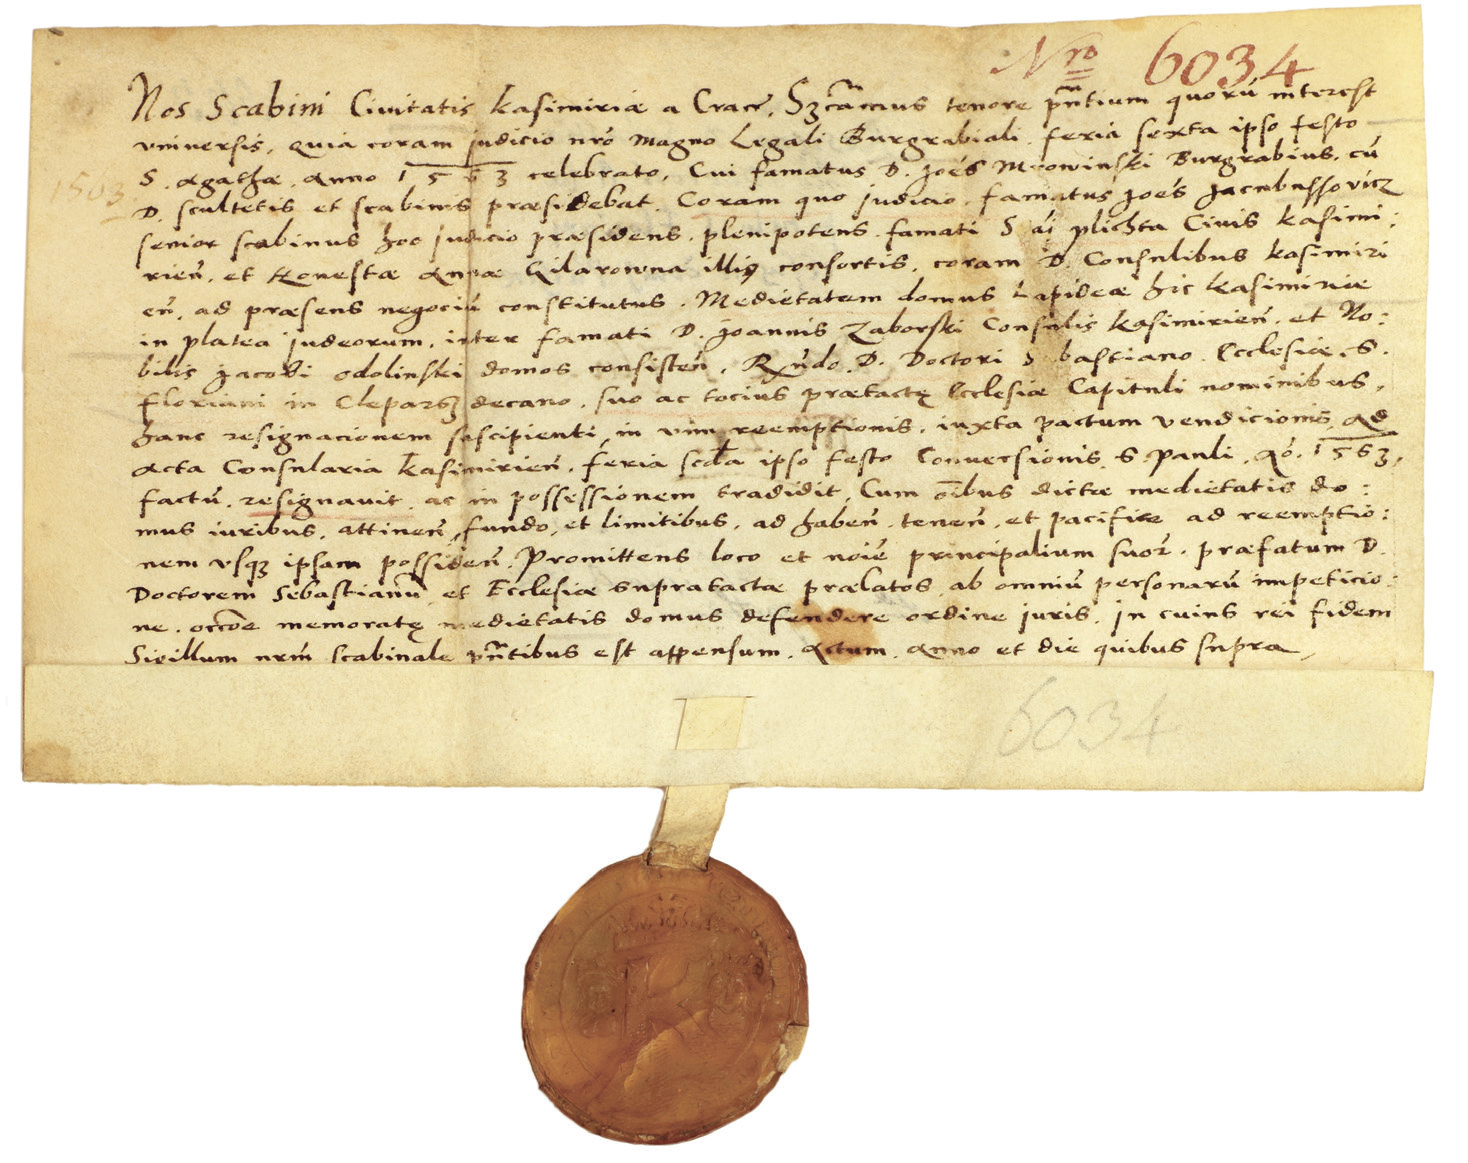 Nro 6034
Nos Scabini Civitatis Kasimiriæ a Cracr. tenore pn̄tium quorū interest
vniversis, quia coram judicio nr̄o magno Legali Burgrabiali feria sexta ipso festo
1503
S. Agathæ. Anno 1563 celebrato, Cui famatus D. Joēs Burgrabius, cū
D. scultetis et scabinis præsidebat. Coram quo judicio famatus Joēs Jacubussovicz
senior scabinus hoc judicio præsidens, plenipotens famati plichta Civis Kasimi:
rien̄. et Honestæ Annæ Gilarowna illiꝯ consortis, coram D. Consulibus Kasimiri
en̄. ad præsens negociū constitutus. Medietatem domus Lapideæ hic Kasimiriæ
in platea judeorum, inter famati D. Joannis Zaborski Consulis Kasimirien̄. et No:
bilis Jacobi Odolinski domos consisten̄. Rn̄do. D. Doctori Sebastiano Ecclesiæ S.
Floriani in Cleparz decano, suo ac tocius prætactę Ecclesiæ Capituli nominibus,
hanc resignacionem suscipienti, in vim reemptionis, iuxta pactum vendicionis ad
Acta Consularia Kasimirien̄. feria scd̄a ipso festo Conversionis S. Pauli. Ao. 1563,
factū. resignavit ac in possessionem tradidit, Cum oībus dictæ medietatis do:
mus iuribus, attinen̄, fundo, et limitibus, ad haben̄. tenen̄. et pacifice ad reemptio:
nem vsqꝫ ipsam possiden̄. Promittens loco et noīe principalium suoꝝ. præfatum D.
Doctorem Sebastianū et Ecclesiæ supratactæ prælatos ab omniū personarū impeticio:
ne. occōe memoratę medietatis domus defendere ordine juris. In cuius rei fidem
Sigillum nr̄m Scabinale pn̄tibus est appensum. Actum. Anno et die quibus supra
6034